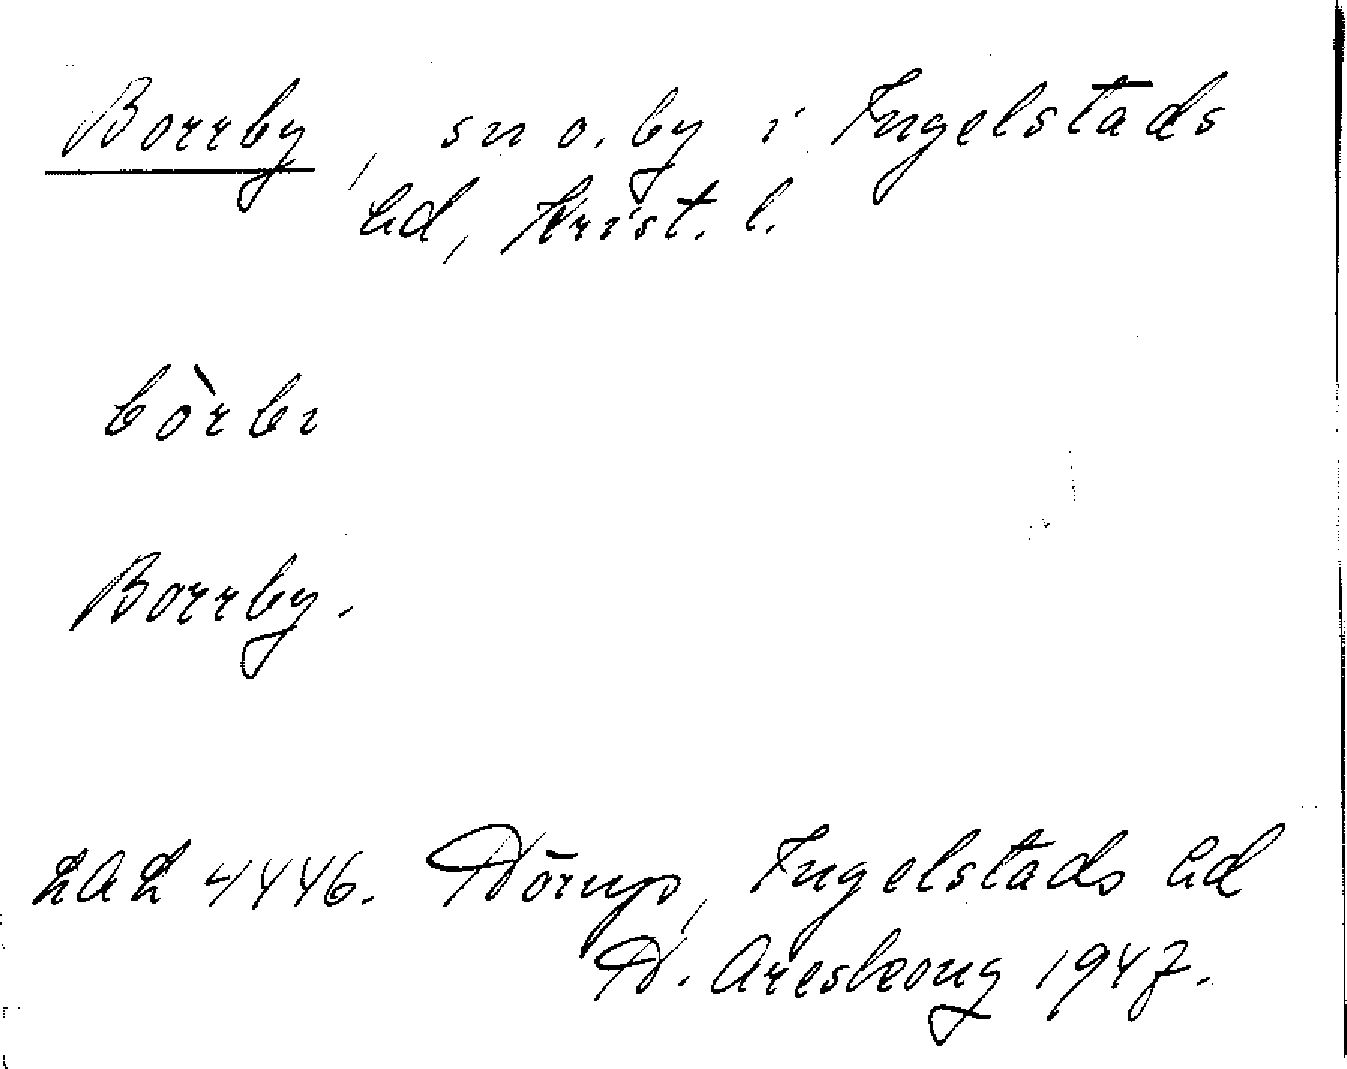 Borrby, sn o. by i Ingelstads
hd, Krist. l.
bòrbı
Borrby.
LAL 4446. Hörup, Ingelstads hd
H. Areskoug 1947.